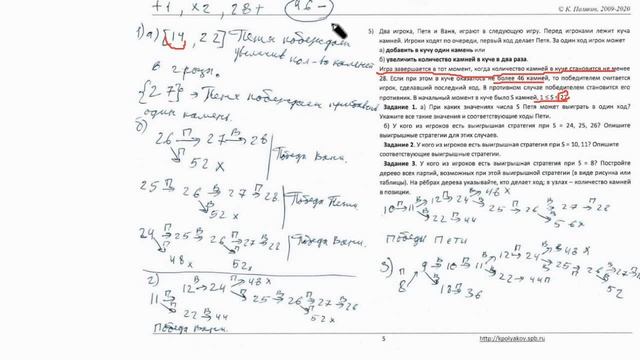 +1, x2, 28+ 46 -
1) а) [14, 22] Петя побеждает
увеличив кол-во камней
в 2 раза.
{27} → Петя побеждает прибавив
один камень.
б)
26 П→ 27 В→ 28
52 x
Победа Вани.
25 П→ 26 В→ 27 П→ 28
52 x
Победа Пети.
24 П→ 25 В→ 26 П→ 27 В→ 28
48 x 52 x
Победа Вани.
2)
11 П→ 12 В→ 24 П→ 48 x
25 В→ 26 П→ 27 В→ 28
22 В→ 44
52 x
Победа Вани.
© К. Поляков, 2009-2020
5) Два игрока, Петя и Ваня, играют в следующую игру. Перед игроками лежит куча
камней. Игроки ходят по очереди, первый ход делает Петя. За один ход игрок может
а) добавить в кучу один камень или
б) увеличить количество камней в куче в два раза.
Игра завершается в тот момент, когда количество камней в куче становится не менее
28. Если при этом в куче оказалось не более 46 камней, то победителем считается
игрок, сделавший последний ход. В противном случае победителем становится его
противник. В начальный момент в куче было S камней, 1 ≤ S ≤ 27.
Задание 1. а) При каких значениях числа S Петя может выиграть в один ход?
Укажите все такие значения и соответствующие ходы Пети.
б) У кого из игроков есть выигрышная стратегия при S = 24, 25, 26? Опишите
выигрышные стратегии для этих случаев.
Задание 2. У кого из игроков есть выигрышная стратегия при S = 10, 11? Опишите
соответствующие выигрышные стратегии.
Задание 3. У кого из игроков есть выигрышная стратегия при S = 8? Постройте
дерево всех партий, возможных при этой выигрышной стратегии (в виде рисунка или
таблицы). На рёбрах дерева указывайте, кто делает ход; в узлах – количество камней
в позиции.
10 П→ 11 В→ 12 П→ 24 В→ 48 x
25 П→ 26 В→ 27 П→ 28
22 П→ 44
Победа Пети
3)
8 П 9 В→ 10 П→ 11 В→ 12 П→ 24 В→ 48 x
22 → 44 П
18 П→ 36
52
5
http://kpolyakov.spb.ru